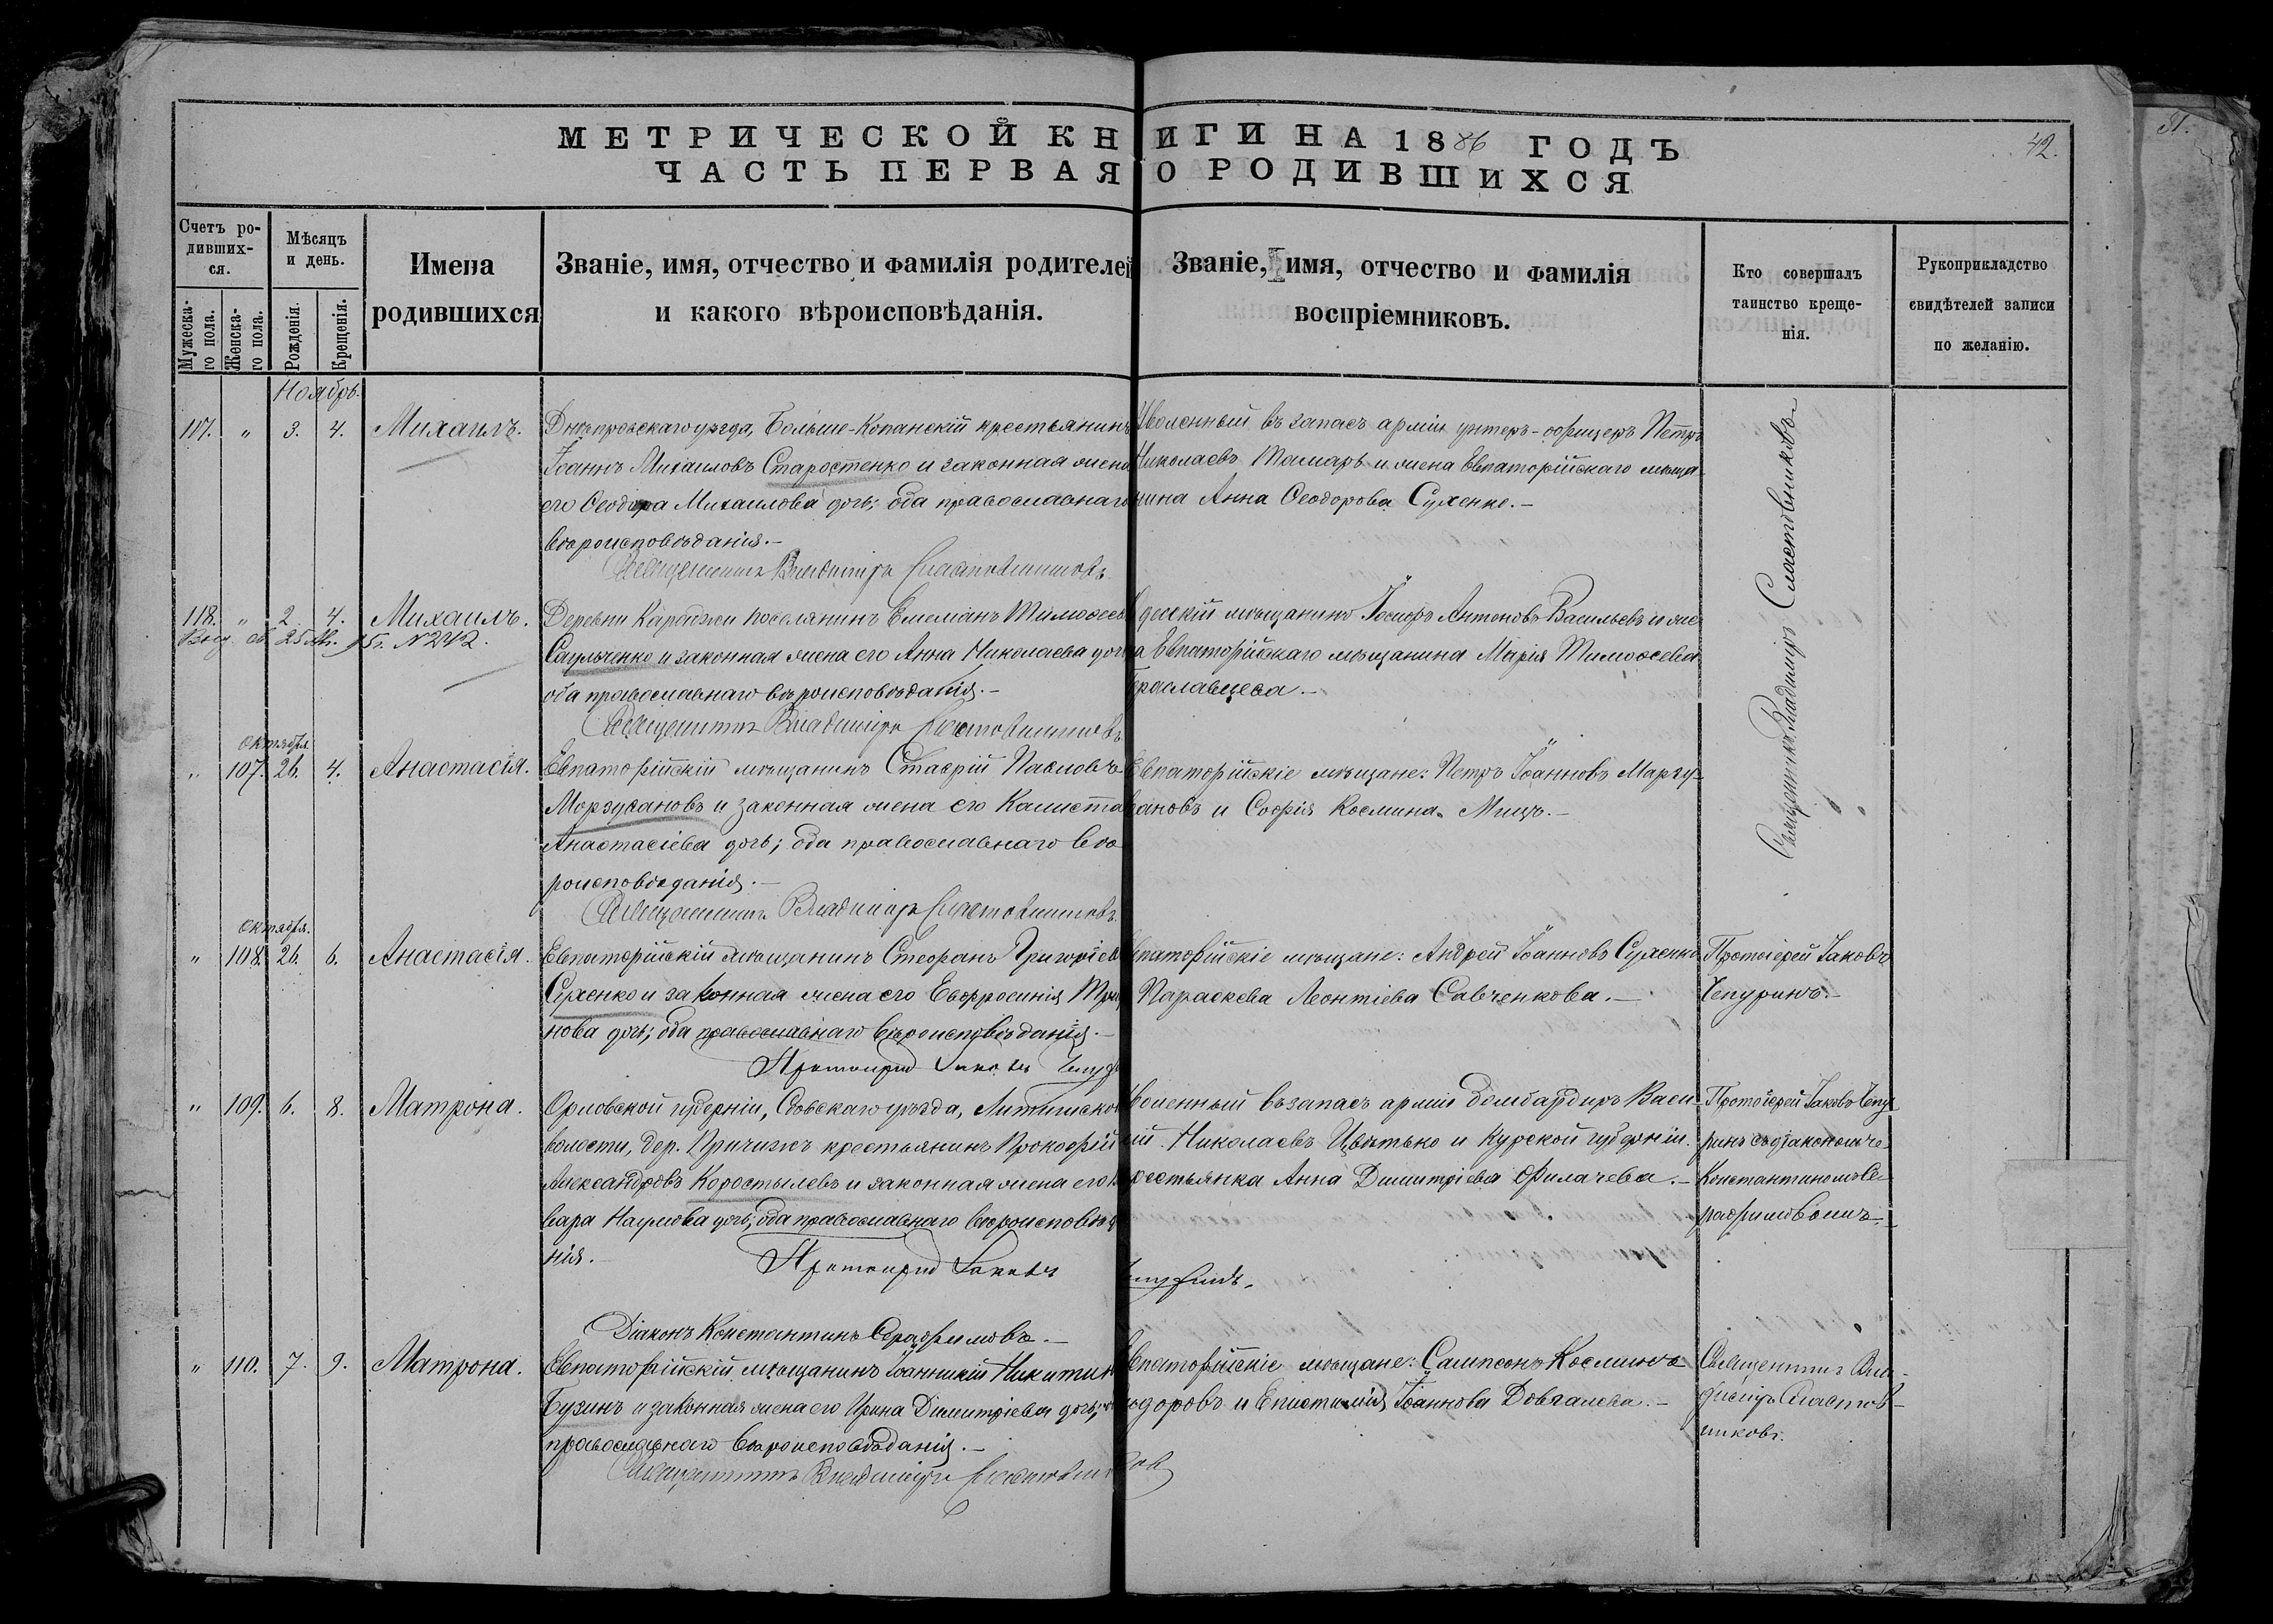 МЕТРИЧЕСКОЙ КНИГИ НА 1886 ГОДЪ
42.
51.
ЧАСТЬ ПЕРВАЯ О РОДИВШИХСЯ
Счетъ ро-
дивших-
ся.
Мужеска-
го пола.
Женска-
го пола.
Мѣсяцъ
и день.
Рожденія.
Крещенія.
Имена
родившихся
Званіе, имя, отчество и фамилія родителей
и какого вѣроисповѣданія.
Званіе, имя, отчество и фамилія
воспріемниковъ.
Кто совершалъ
таинство креще-
нія.
Рукоприкладство
свидѣтелей записи
по желанію.
Ноябрь.
117. " 3. 4. Михаилъ.
Днѣпровскаго уѣзда, Больше-Копанскій крестьянинъ
Іоаннъ Михаиловъ Старостенко и законная жена
его Ѳеодора Михаилова дочь; оба православнаго
вѣроисповѣданія.—
Священникъ Владиміръ Сластовниковъ
Уволенный въ запасъ арміи унтеръ-офицеръ Петръ
Николаевъ Тамаръ и жена Евпаторійскаго мѣща-
нина Анна Ѳеодорова Сухенко.—
Священникъ Владиміръ Сластовниковъ
118. " 2. 4. Михаилъ.
№ 242.
Деревни Караджи поселянинъ Емеліанъ Тимоѳеевъ
Саульченко и законная жена его Анна Николаева дочь
оба православнаго вѣроисповѣданія.—
Священникъ Владиміръ Сластовниковъ
Одесскій мѣщанинъ Іосифъ Антоновъ Васильевъ и же-
на Евпаторійскаго мѣщанина Марія Тимоѳеева
Октября
" 107. 26. 4. Анастасія.
Евпаторійскій мѣщанинъ Ставрій Павловъ
Моргудановъ и законная жена его Калиста
Анастасіева дочь; оба православнаго вѣ-
роисповѣданія.—
Священникъ Владиміръ Сластовниковъ
Евпаторійскіе мѣщане: Петръ Іоанновъ Маргу-
дановъ и Софія Космина Мицъ.—
Октября.
" 108. 26. 6. Анастасія.
Евпаторійскій мѣщанинъ Стефанъ Григоріевъ
Сухенко и законная жена его Евфросинія Триф-
нова дочь; оба православнаго вѣроисповѣданія.—
Протоіерей Іаковъ Чепур
Евпаторійскіе мѣщане: Андрей Іоанновъ Сухенко
Параскева Леонтіева Савченкова.—
Протоіерей Іаковъ
Чепуринъ.—
" 109. 6. 8. Матрона.
Орловской губерніи, Сѣвскаго уѣзда,
волости, дер. Причижъ крестьянинъ Прокофій
Александровъ Коростылевъ и законная жена его
вара Наумова дочь; оба православнаго вѣроисповѣда-
нія.—
Протоіерей Іаковъ Чепуринъ.
Діаконъ Константинъ Серафимовъ.—
Уволенный въ запасъ арміи бомбардиръ Васи-
лій Николаевъ Цвѣтько и Курской губерніи
крестьянка Анна Димитріева Филачева.—
Протоіерей Іаковъ Чепу-
ринъ съ діакономъ
Константиномъ Се-
рафимовымъ.
" 110. 7. 9. Матрона.
Евпаторійскій мѣщанинъ Іоанникій Никитинъ
Бузинъ и законная жена его Ирина Димитріева дочь;
православнаго вѣроисповѣданія.—
Священникъ Владиміръ Сластовниковъ
Евпаторійскіе мѣщане: Сампсонъ Косминъ
Ѳодоровъ и Епистимія Іоаннова Довгалева.—
Священникъ Вла-
диміръ Сластов-
никовъ.